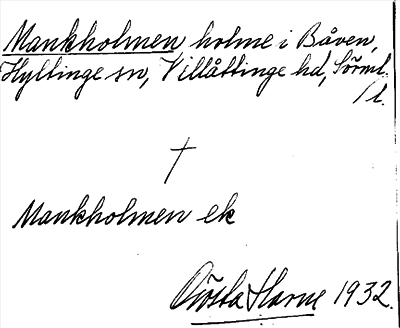 Mankholmen, holme i Båven,
Hyltinge sn, Villåttinge hd, Sörml.
l.
Mankholmen ek
Gösta Harne 1932.